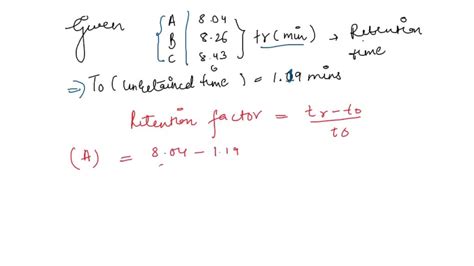 Given { A | 8.04
B | 8.26 } tr(min) → Retention time
C | 8.43
⇒ To (unretained time) = 1.19 mins
Retention factor = tr-to / to
(A) = 8.04 - 1.19